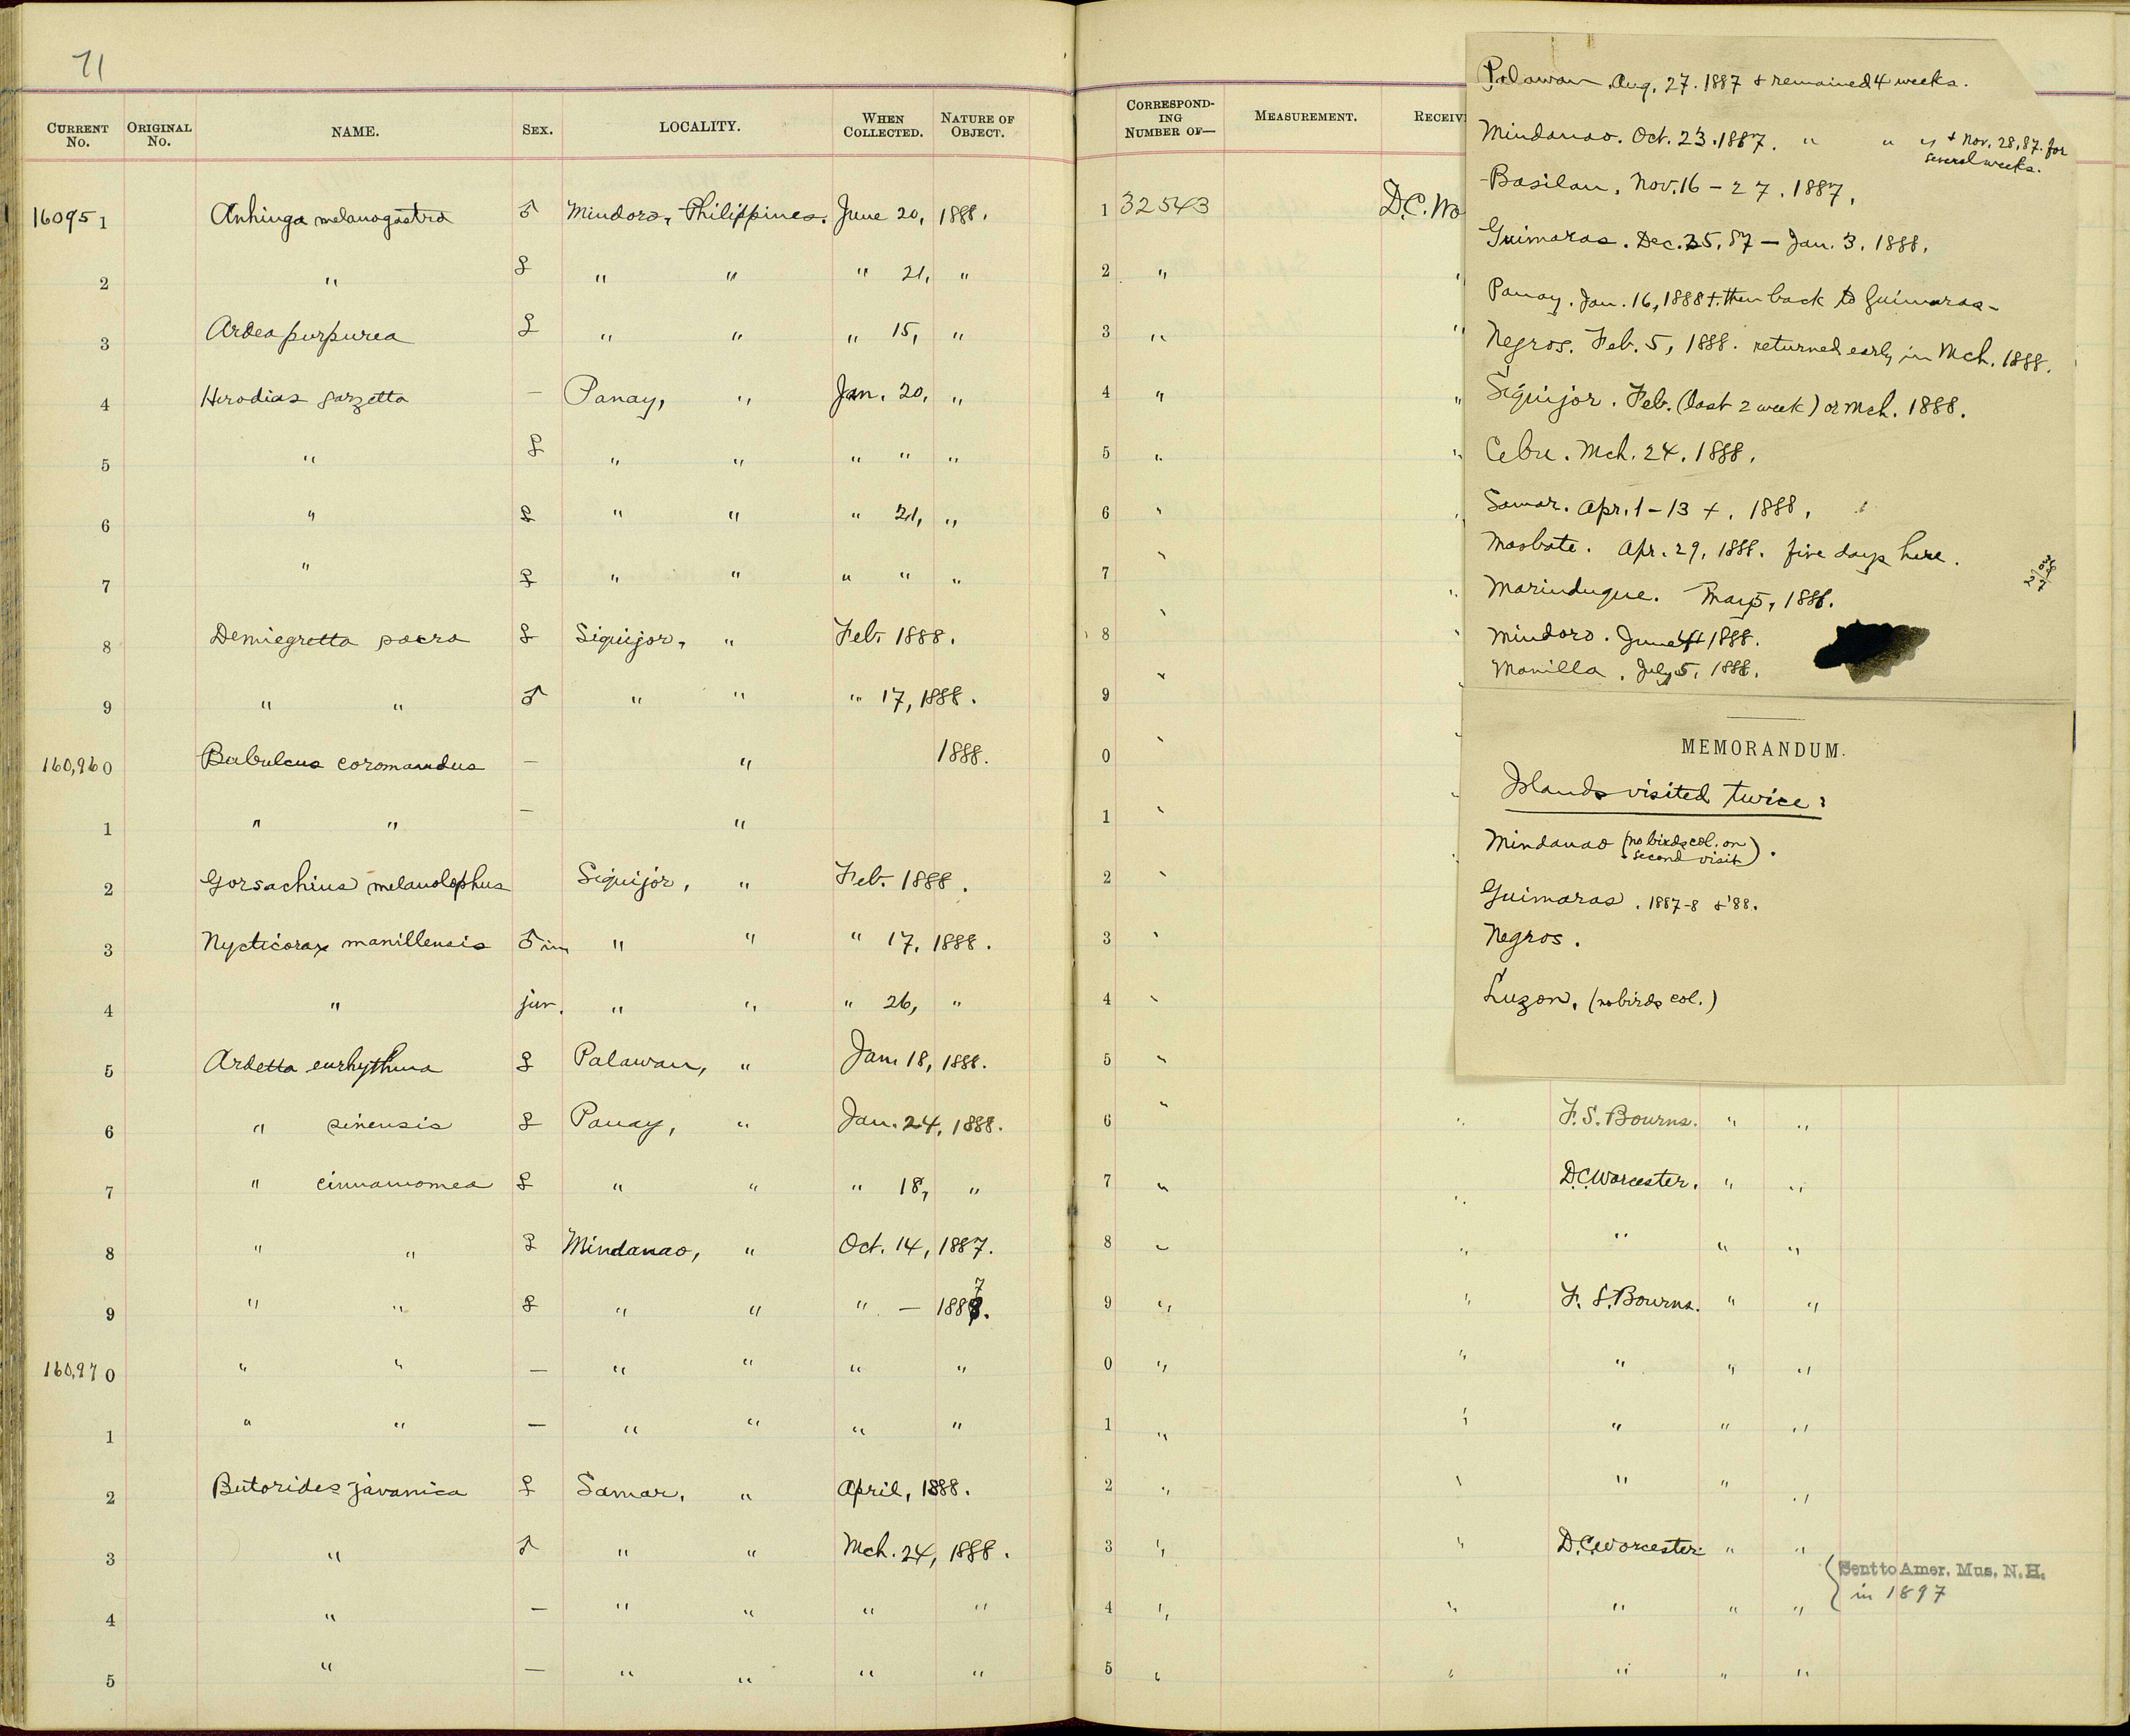 71
CURRENT No. ORIGINAL No. NAME. SEX. LOCALITY. WHEN COLLECTED. NATURE OF OBJECT.
160951 Anhinga melanogastra ♂ Mindoro, Philippines. June 20, 1888.
2 " ♀ " " " 21, "
3 Ardea purpurea ♀ " " " 15, "
4 Herodias garzetta — Panay, " Jan. 20, "
5 " ♀ " " " " "
6 " ♀ " " " 21, "
7 " ♀ " " " " "
8 Demiegretta sacra ♀ Siquijor, " Feb. 1888.
9 " " ♂ " " " 17, 1888.
160,960 Bubulcus coromandus — " 1888.
1 " " — "
2 Gorsachius melanolophus Siquijor, " Feb. 1888.
3 Nycticorax manillensis ♂ im " " " 17, 1888.
4 " juv. " " " 26, "
5 Ardetta eurhythma ♀ Palawan, " Jan. 18, 1888.
6 " sinensis ♀ Panay, " Jan. 24, 1888.
7 " cinnamomea ♀ " " " 18, "
8 " " ♀ Mindanao, " Oct. 14, 1887.
9 " " ♀ " " " — 1887.
160,970 " " — " " " "
1 " " — " " " "
2 Butorides javanica ♀ Samar, " April, 1888.
3 " ♂ " " Mch. 24, 1888.
4 " — " " " "
5 " — " " " "
CORRESPONDING NUMBER OF— MEASUREMENT. RECEIV
1 32543 D.C. Wo
2 " "
3 " "
4 " "
5 " "
6 "
7 "
8 "
9 "
0 "
1 "
2 "
3 "
4 "
5 "
6 " " F. S. Bourns. " "
7 " " D.C. Worcester. " "
8 " " " " "
9 " " F. S. Bourns. " "
0 " " " " "
1 " " " " "
2 " " " " "
3 " " D.C. Worcester " "
Sent to Amer. Mus. N. H.
in 1897
4 " " " " "
5 " " " " "
Palawan. Aug. 27. 1887 & remained 4 weeks.
Mindanao. Oct. 23. 1887. " " " & Nov. 28, 87. for
several weeks.
Basilan. Nov. 16 – 27. 1887.
Guimaras. Dec. 25, 87 — Jan. 3. 1888.
Panay. Jan. 16, 1888 +. then back to Guimaras –
Negros. Feb. 5, 1888. returned early in Mch. 1888.
Siquijor. Feb. (last 2 week) or Mch. 1888.
Cebu. Mch. 24. 1888.
Samar. Apr. 1 – 13 +. 1888.
Masbate. Apr. 29, 1888. five days here.
Marinduque. May 5, 1888.
Mindoro. June 1888.
Manilla. July 5, 1888.
MEMORANDUM.
Islands visited twice:
Mindanao (no birds col. on
second visit).
Guimaras. 1887-8 & '88.
Negros.
Luzon. (no birds col.)